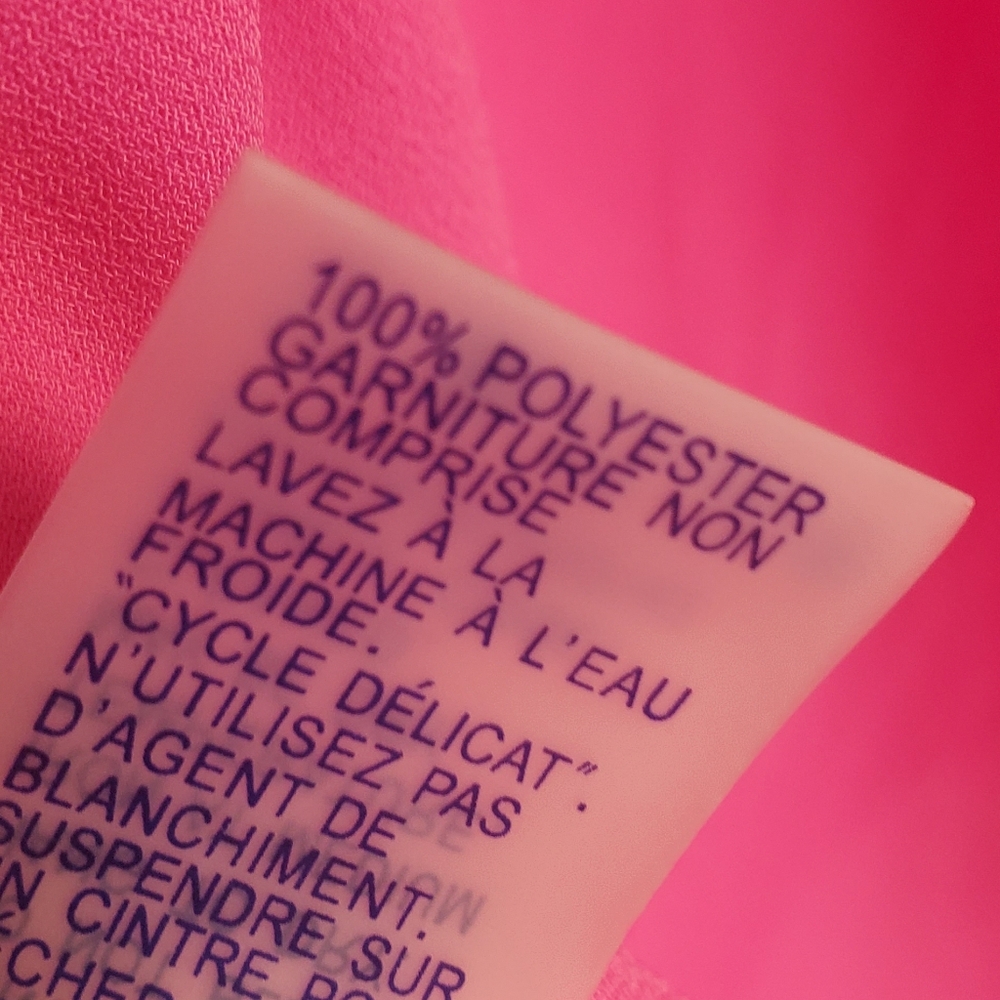 100% POLYESTER
GARNITURE NON
COMPRISE
LAVEZ À LA
MACHINE À L'EAU
FROIDE.
"CYCLE DÉLICAT".
N'UTILISEZ PAS
D'AGENT DE
BLANCHIMENT.
SUSPENDRE SUR
CINTRE